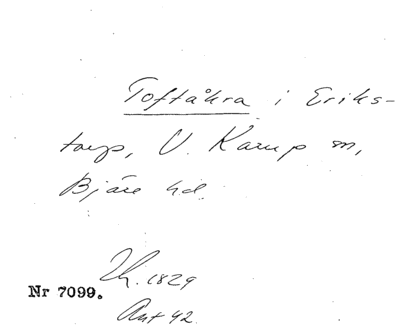 Toftåkra i Eriks-
torp, V. Karup sn,
Bjäre hd.
Th. 1829
Nr 7099.
Ant 42